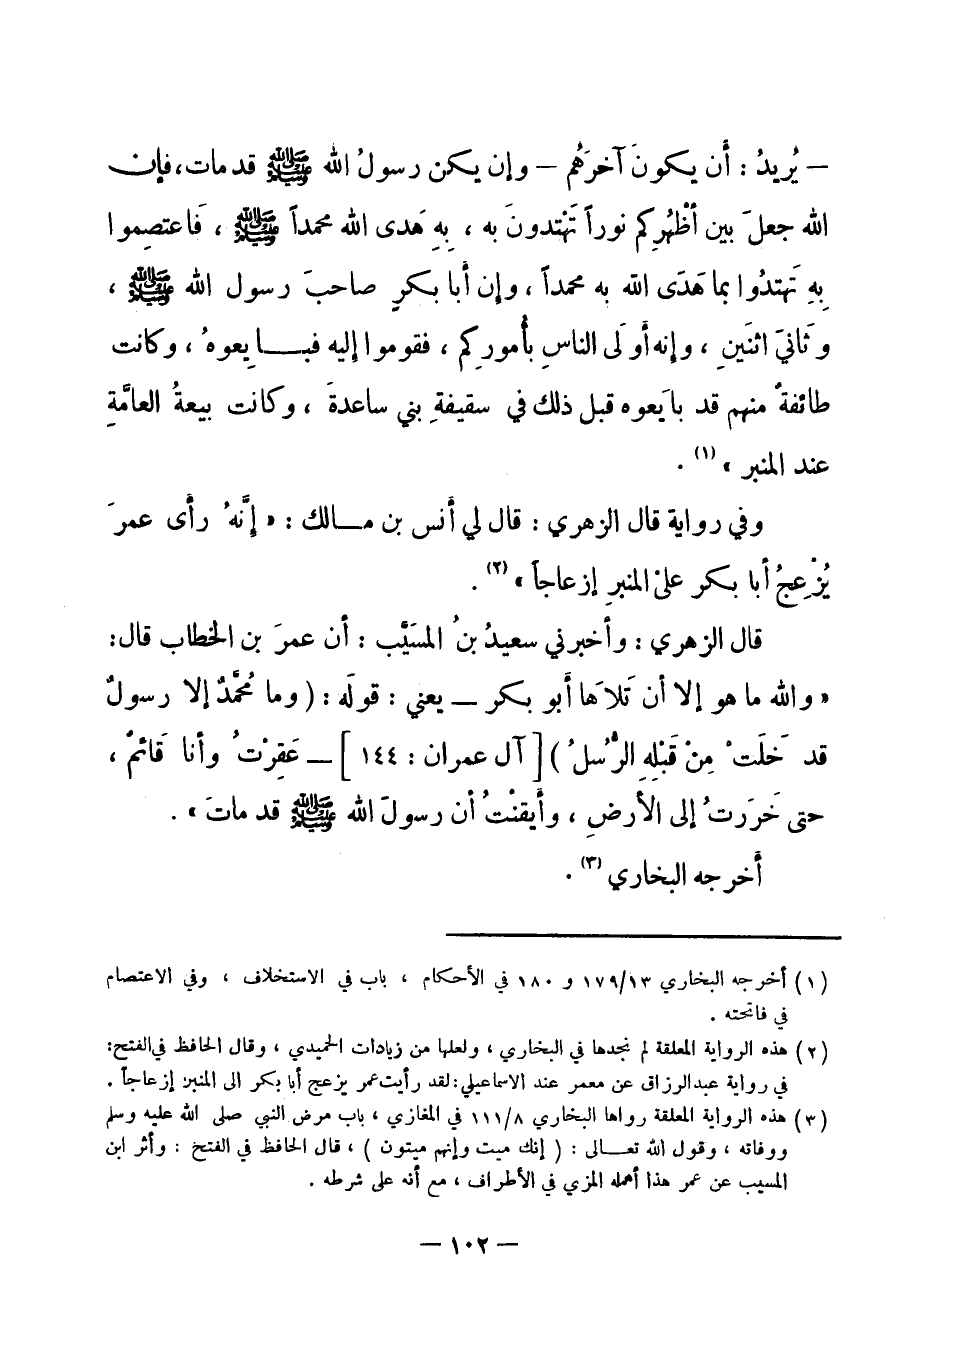 — يُريدُ : أَن يكونَ آخرَهُم — وإن يكن رسولُ الله ﷺ قد مات، فإن
الله جعلَ بين أظْهُرِكم نوراً تَهْتدونَ به ، بِهِ هَدى الله محمداً ﷺ ، فَاعتصِموا
بِهِ تَهتدُوا بما هَدَى الله به محمداً ، وإن أبا بكرٍ صاحبَ رسول الله ﷺ ،
وثَانيَ اثنَينِ ، وإنه أولَى الناسِ بأُموركِم ، فقوموا إليه فبايِعوهُ ، وكانت
طائفةٌ منهم قد بايَعوه قبل ذلك في سقيفةِ بني ساعدةَ ، وكانت بيعةُ العامَّةِ
عند المنبر » (١) .
وفي رواية قال الزهري : قال لي أنس بن مالك : « إنَّهُ رأى عمرَ
يُزْعِجُ أبا بكر على المنبرِ إزعاجاً » (٢) .
قال الزهري : وأخبرني سعيدُ بنُ المسَيَّب : أن عمرَ بن الخطاب قال:
« والله ما هو إلا أن تَلاَها أبو بكر — يعني : قولَه : ( وما مُحمَّدٌ إلا رسولٌ
قد خَلَتْ مِنْ قَبْلِهِ الرُّسلُ ) [ آل عمران : ١٤٤ ] — عَقِرْتُ وأنا قَائمٌ ،
حتى خَرَرتُ إلى الأرضِ ، وأيقنْتُ أن رسولَ الله ﷺ قد ماتَ » .
أخرجه البخاري (٣) .
(١) أخرجه البخاري ١٧٩/١٣ و ١٨٠ في الأحكام ، باب في الاستخلاف ، وفي الاعتصام
في فاتحته .
(٢) هذه الرواية المعلقة لم نجدها في البخاري ، ولعلها من زيادات الحميدي ، وقال الحافظ في الفتح:
في رواية عبدالرزاق عن معمر عند الاسماعيلي: لقد رأيت عمر يزعج أبا بكر الى المنبر إزعاجاً .
(٣) هذه الرواية المعلقة رواها البخاري ١١١/٨ في المغازي ، باب مرض النبي صلى الله عليه وسلم
ووفاته ، وقول الله تعالى : ( إنك ميت وإنهم ميتون ) ، قال الحافظ في الفتح : وأثر ابن
المسيب عن عمر هذا أهمله المزي في الأطراف ، مع أنه على شرطه .
— ١٠٢ —